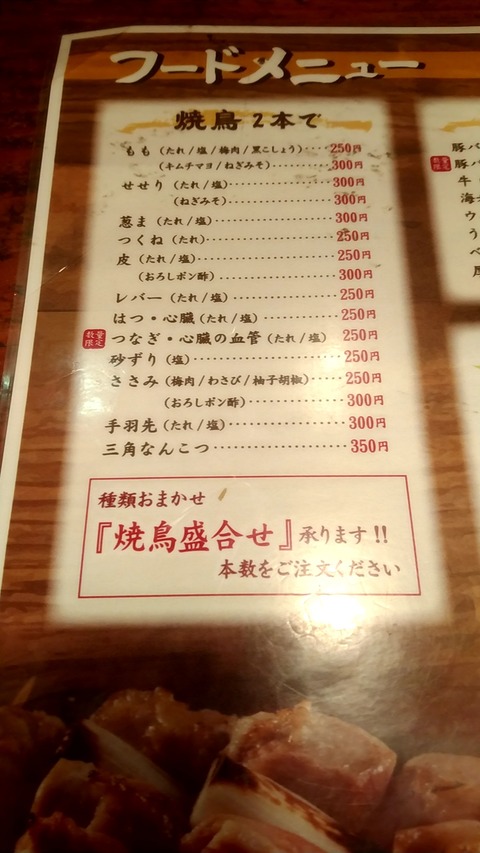 フードメニュー
焼鳥2本で
もも（たれ/塩/梅肉/黒こしょう）‥‥250円
（キムチマヨ/ねぎみそ）‥‥‥‥‥300円
せせり（たれ/塩）‥‥‥‥‥‥‥300円
（ねぎみそ）‥‥‥‥‥‥‥300円
葱ま（たれ/塩）‥‥‥‥‥‥‥300円
つくね（たれ）‥‥‥‥‥‥‥250円
皮（たれ/塩）‥‥‥‥‥‥‥250円
（おろしポン酢）‥‥‥‥‥‥300円
レバー（たれ/塩）‥‥‥‥‥‥250円
はつ・心臓（たれ/塩）‥‥‥‥250円
数量限定
つなぎ・心臓の血管（たれ/塩）250円
砂ずり（塩）‥‥‥‥‥‥‥‥250円
ささみ（梅肉/わさび/柚子胡椒）‥‥250円
（おろしポン酢）‥‥‥‥‥300円
手羽先（たれ/塩）‥‥‥‥‥‥300円
三角なんこつ‥‥‥‥‥‥‥350円
種類おまかせ
『焼鳥盛合せ』承ります!!
本数をご注文ください
豚バ
数量限定
豚バ
牛
海
ウ
う